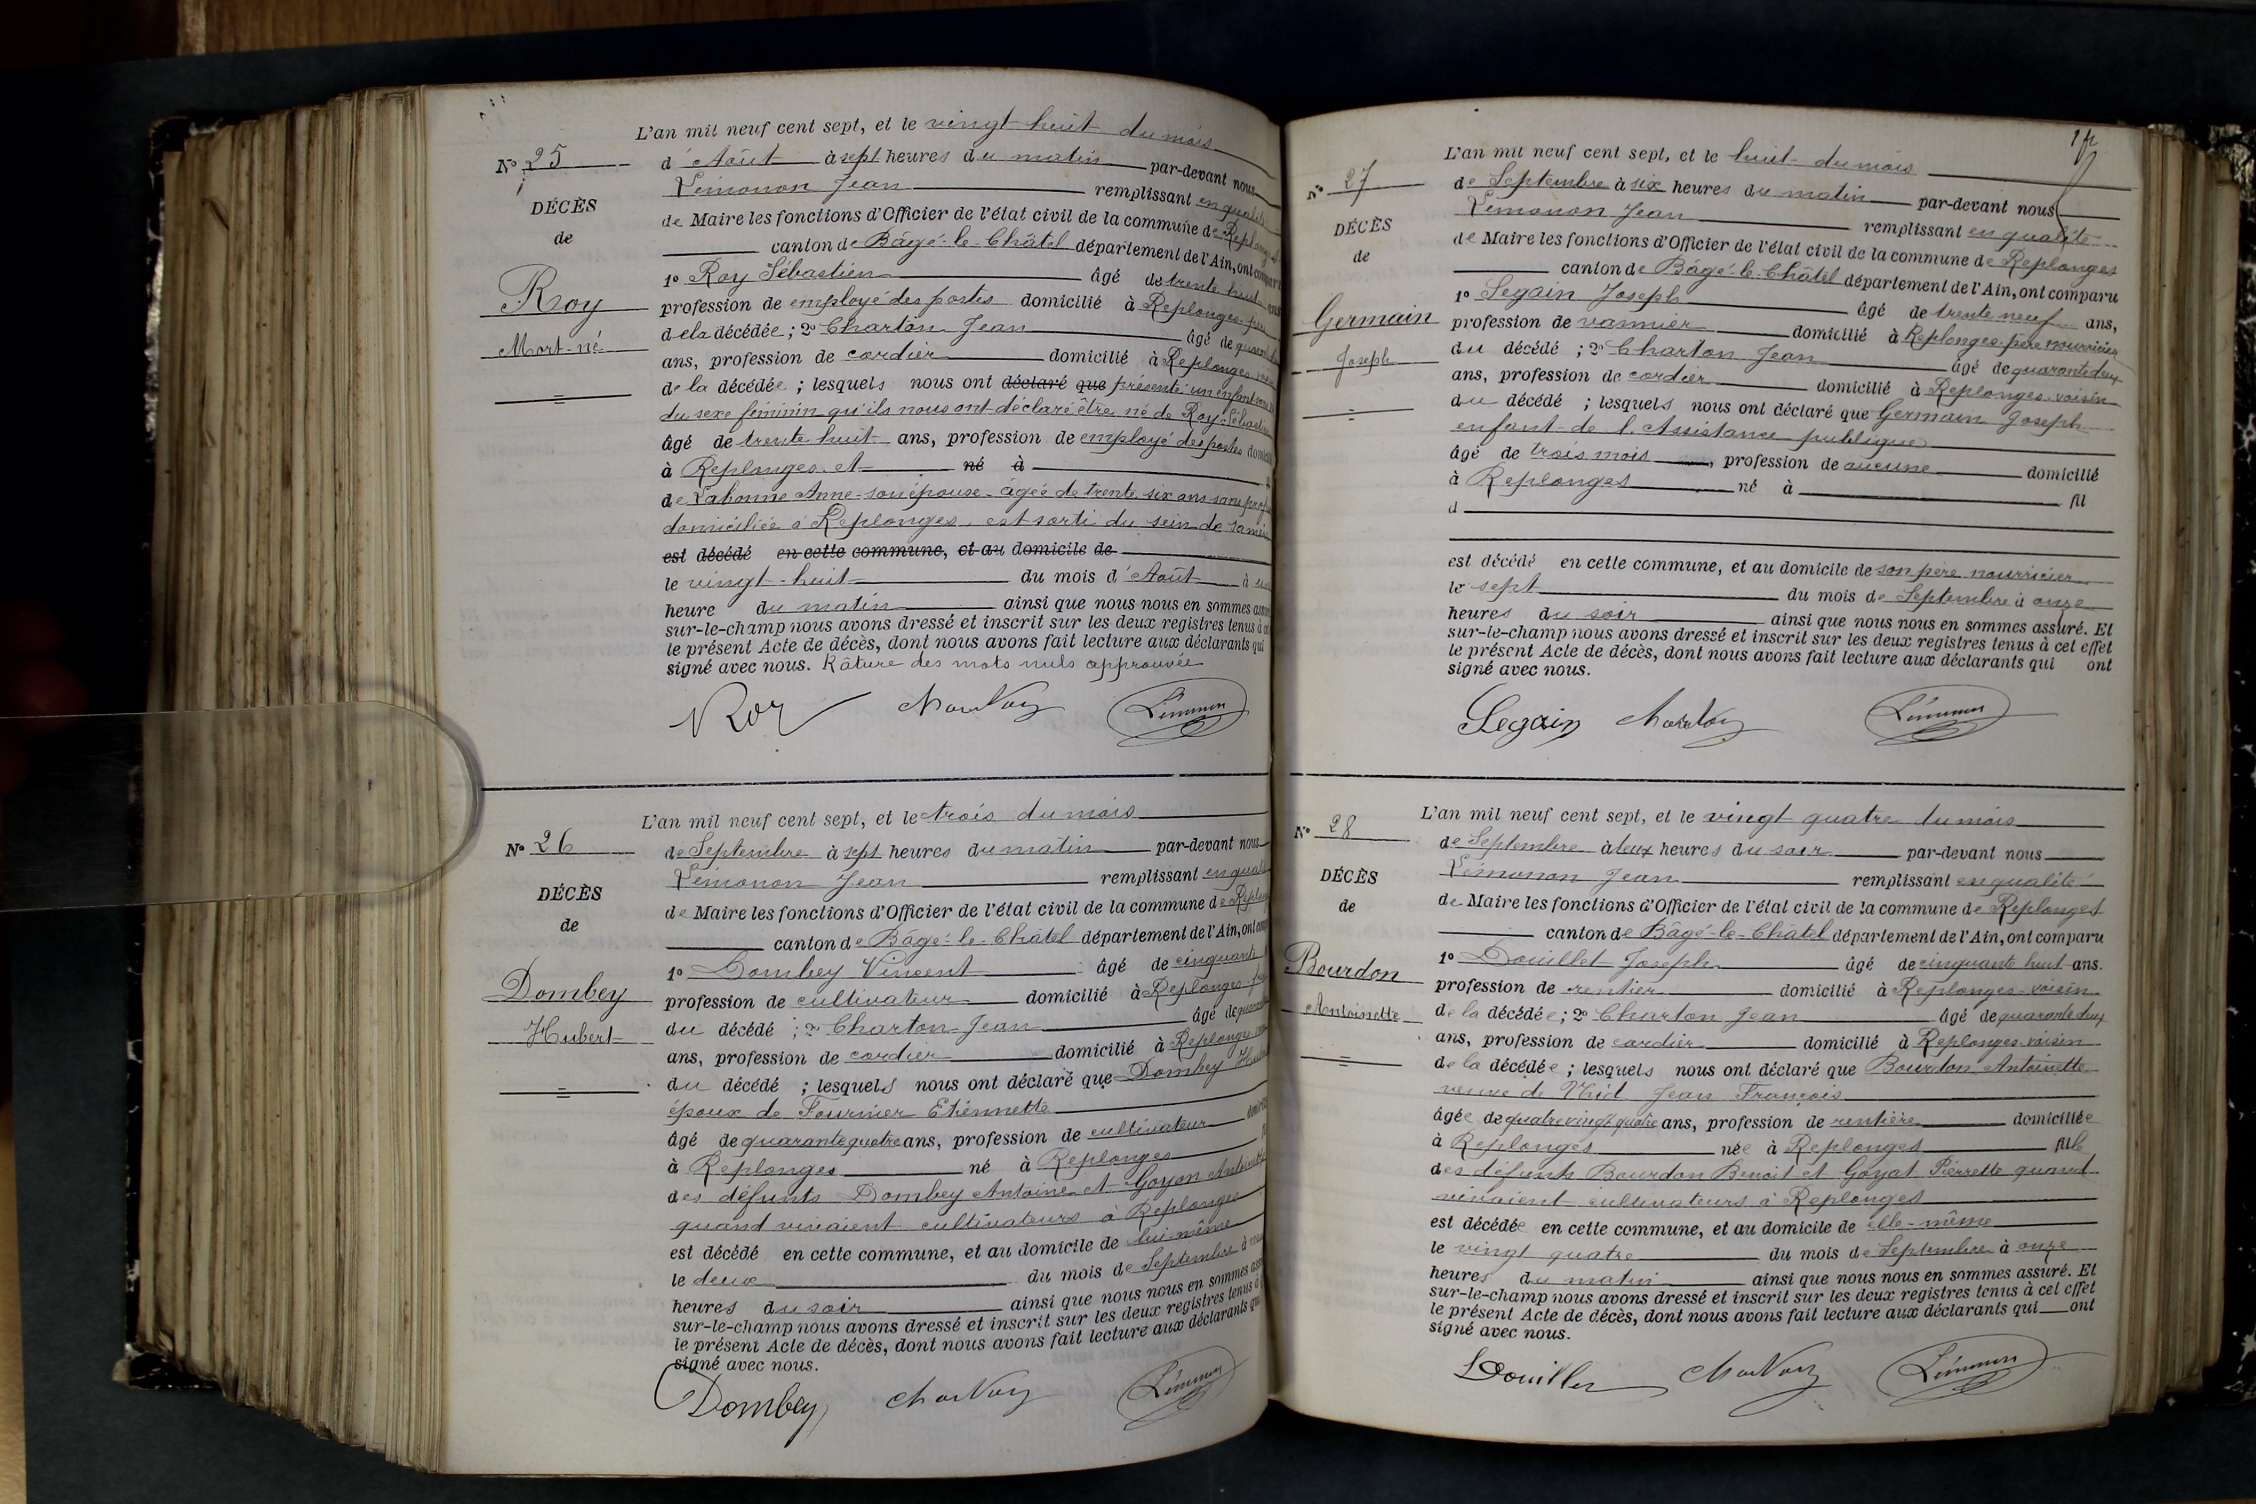 L'an mil neuf cent sept, et le vingt-huit du mois
N° 25
d'Août à sept heures du matin par-devant nous
Lémonon Jean remplissant en qualité
DÉCÈS
de Maire les fonctions d'Officier de l'état civil de la commune de Replonges
de
canton de Bâgé-le-Châtel département de l'Ain, ont comparu
1° Roy Sébastien âgé de trente huit ans
Roy
profession de employé des postes domicilié à Replonges père
de la décédée ; 2° Charton Jean âgé de
Mort-né
ans, profession de cordier domicilié à Replonges
de la décédée ; lesquels nous ont déclaré que présenté un enfant
du sexe féminin qu'ils nous ont déclaré être né de Roy Sébastien
âgé de trente huit ans, profession de employé des postes
à Replonges et né à
de Labonne Anne son épouse âgée de trente six ans sans
domiciliée à Replonges, est sorti du sein de sa mère
est décédé en cette commune, et au domicile de
le vingt-huit du mois d'Août à
heure du matin ainsi que nous nous en sommes
sur-le-champ nous avons dressé et inscrit sur les deux registres tenus à
le présent Acte de décès, dont nous avons fait lecture aux déclarants qui
signé avec nous. Râture des mots nuls approuvée
Roy Charton Lémonon
L'an mil neuf cent sept, et le trois du mois
N° 26
de Septembre à sept heures du matin par-devant nous
Lémonon Jean remplissant en qualité
DÉCÈS
de Maire les fonctions d'Officier de l'état civil de la commune de Replonges
de
canton de Bâgé-le-Châtel département de l'Ain, ont
1° Dombey Vincent âgé de cinquante
Dombey
profession de cultivateur domicilié à Replonges
Hubert
du décédé ; 2° Charton Jean âgé de
ans, profession de cordier domicilié à Replonges
du décédé ; lesquels nous ont déclaré que Dombey Hubert
époux de Fournier Etiennette
âgé de quarante quatre ans, profession de cultivateur
à Replonges né à Replonges
des défunts Dombey Antoine et Goyon Antoinette
quand vivaient cultivateurs à Replonges
est décédé en cette commune, et au domicile de lui-même
le deux du mois de Septembre à
heures du soir ainsi que nous nous en sommes
sur-le-champ nous avons dressé et inscrit sur les deux registres tenus à
le présent Acte de décès, dont nous avons fait lecture aux déclarants qui
signé avec nous.
Dombey Charton Lémonon
L'an mil neuf cent sept, et le huit du mois
N° 27
de Septembre à six heures du matin par-devant nous
Lémonon Jean remplissant en qualité
DÉCÈS
de Maire les fonctions d'Officier de l'état civil de la commune de Replonges
de
canton de Bâgé-le-Châtel département de l'Ain, ont comparu
1° Segain Joseph âgé de trente neuf ans,
Germain
profession de vannier domicilié à Replonges père nourricier
Joseph
du décédé ; 2° Charton Jean âgé de quarante deux
ans, profession de cordier domicilié à Replonges voisin
du décédé ; lesquels nous ont déclaré que Germain Joseph
enfant de l'Assistance publique
âgé de trois mois, profession de aucune domicilié
à Replonges né à fil
d
est décédé en cette commune, et au domicile de son père nourricier
le sept du mois de Septembre à onze
heures du soir ainsi que nous nous en sommes assuré. Et
sur-le-champ nous avons dressé et inscrit sur les deux registres tenus à cet effet
le présent Acte de décès, dont nous avons fait lecture aux déclarants qui ont
signé avec nous.
Segain Charton Lémonon
L'an mil neuf cent sept, et le vingt quatre du mois
N° 28
de Septembre à deux heures du soir par-devant nous
Lémonon Jean remplissant en qualité
DÉCÈS
de Maire les fonctions d'Officier de l'état civil de la commune de Replonges
de
canton de Bâgé-le-Châtel département de l'Ain, ont comparu
1° Douillet Joseph âgé de cinquante huit ans.
Bourdon
profession de rentier domicilié à Replonges voisin
Antoinette
de la décédée ; 2° Charton Jean âgé de quarante deux
ans, profession de cordier domicilié à Replonges voisin
de la décédée ; lesquels nous ont déclaré que Bourdon Antoinette
veuve de Jean François
âgée de quatre vingt quatre ans, profession de rentière domiciliée
à Replonges née à Replonges fille
des défunts Bourdon Benoit et Goyat Pierrette quand
vivaient cultivateurs à Replonges
est décédée en cette commune, et au domicile de elle-même
le vingt quatre du mois de Septembre à onze
heures du matin ainsi que nous nous en sommes assuré. Et
sur-le-champ nous avons dressé et inscrit sur les deux registres tenus à cet effet
le présent Acte de décès, dont nous avons fait lecture aux déclarants qui ont
signé avec nous.
Douillet Charton Lémonon